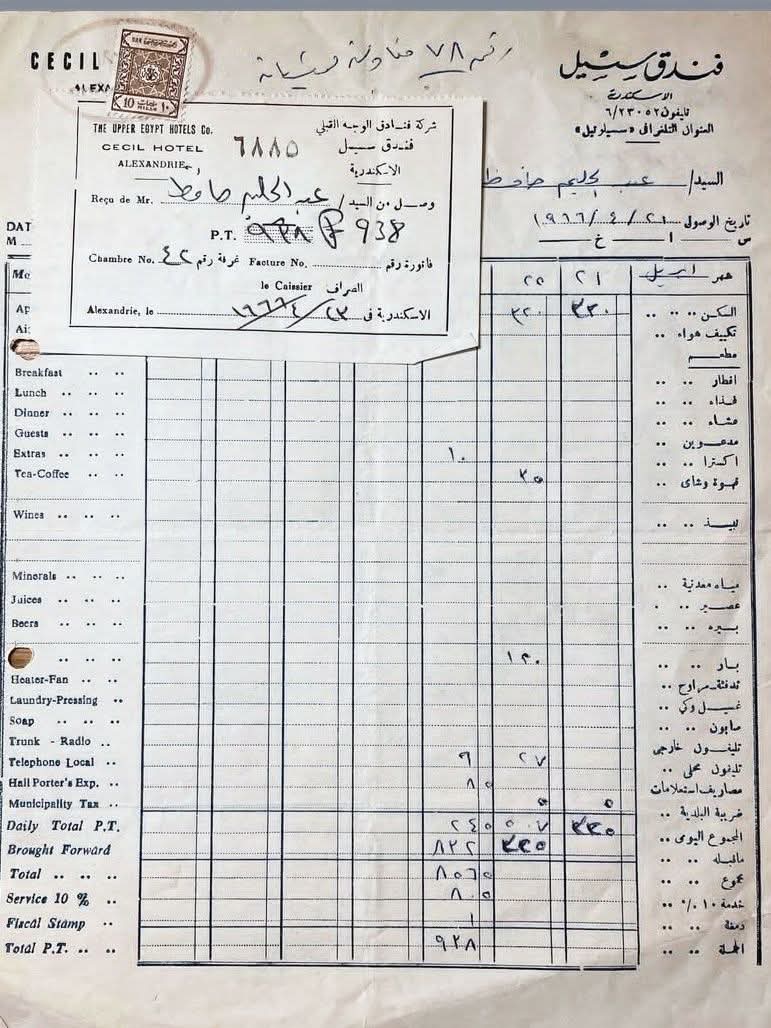 CECIL
رقم ٧٨
فندق سيسيل
الاسكندرية
تليفون ٦/٢٣٠٥٢
العنوان التلغرافى «سيلوتيل»
ALEXA
10 MILLS ١٠
THE UPPER EGYPT HOTELS Co.
شركة فنادق الوجه القبلي
CECIL HOTEL
6885
فندق سيسل
ALEXANDRIE
الاسكندرية
Reçu de Mr. عبد الحليم حافظ وصل من السيد /
P.T. 938
Chambre No. ٤٢ غرفة رقم Facture No. فاتورة رقم
le Caissier الصراف
Alexandrie, le ٢٣/٤/١٩٦٦ الاسكندرية فى
السيد/ عبد الحليم حافظ
DAT
تاريخ الوصول ٢١/٤/١٩٦٦
M
س ا خ
Mo ٢١ شهر ابريل
Ap ٣٢٠ ٣٣٠ السكن
Ai تكييف هواء
مطعم
Breakfast افطار
Lunch غذاء
Dinner عشاء
Guests مدعوين
Extras ١٠ اكسترا
Tea-Coffee ٣٥ قهوة وشاى
Wines نبيذ
Minerals مياه معدنية
Juices عصير
Beers بيره
١٢٠ بار
Heater-Fan تدفئة-مراوح
Laundry-Pressing غسيل وكي
Soap صابون
Trunk - Radio تليفون خارجى
Telephone Local ٩ ٢٧ تليفون محلى
Hall Porter's Exp. ٨٥ مصاريف استعلامات
Municipality Tax ٥ ٥ ضريبة البلدية
Daily Total P.T. ٥٠٧ ٣٣٥ المجموع اليومى
Brought Forward ٨٢٢ ٣٣٥ ماقبله
Total مجموع
Service 10 % ٨٠٥ خدمة ١٠ ٪
Fiscal Stamp ١ دمغة
Total P.T. ٩٣٨ الجملة